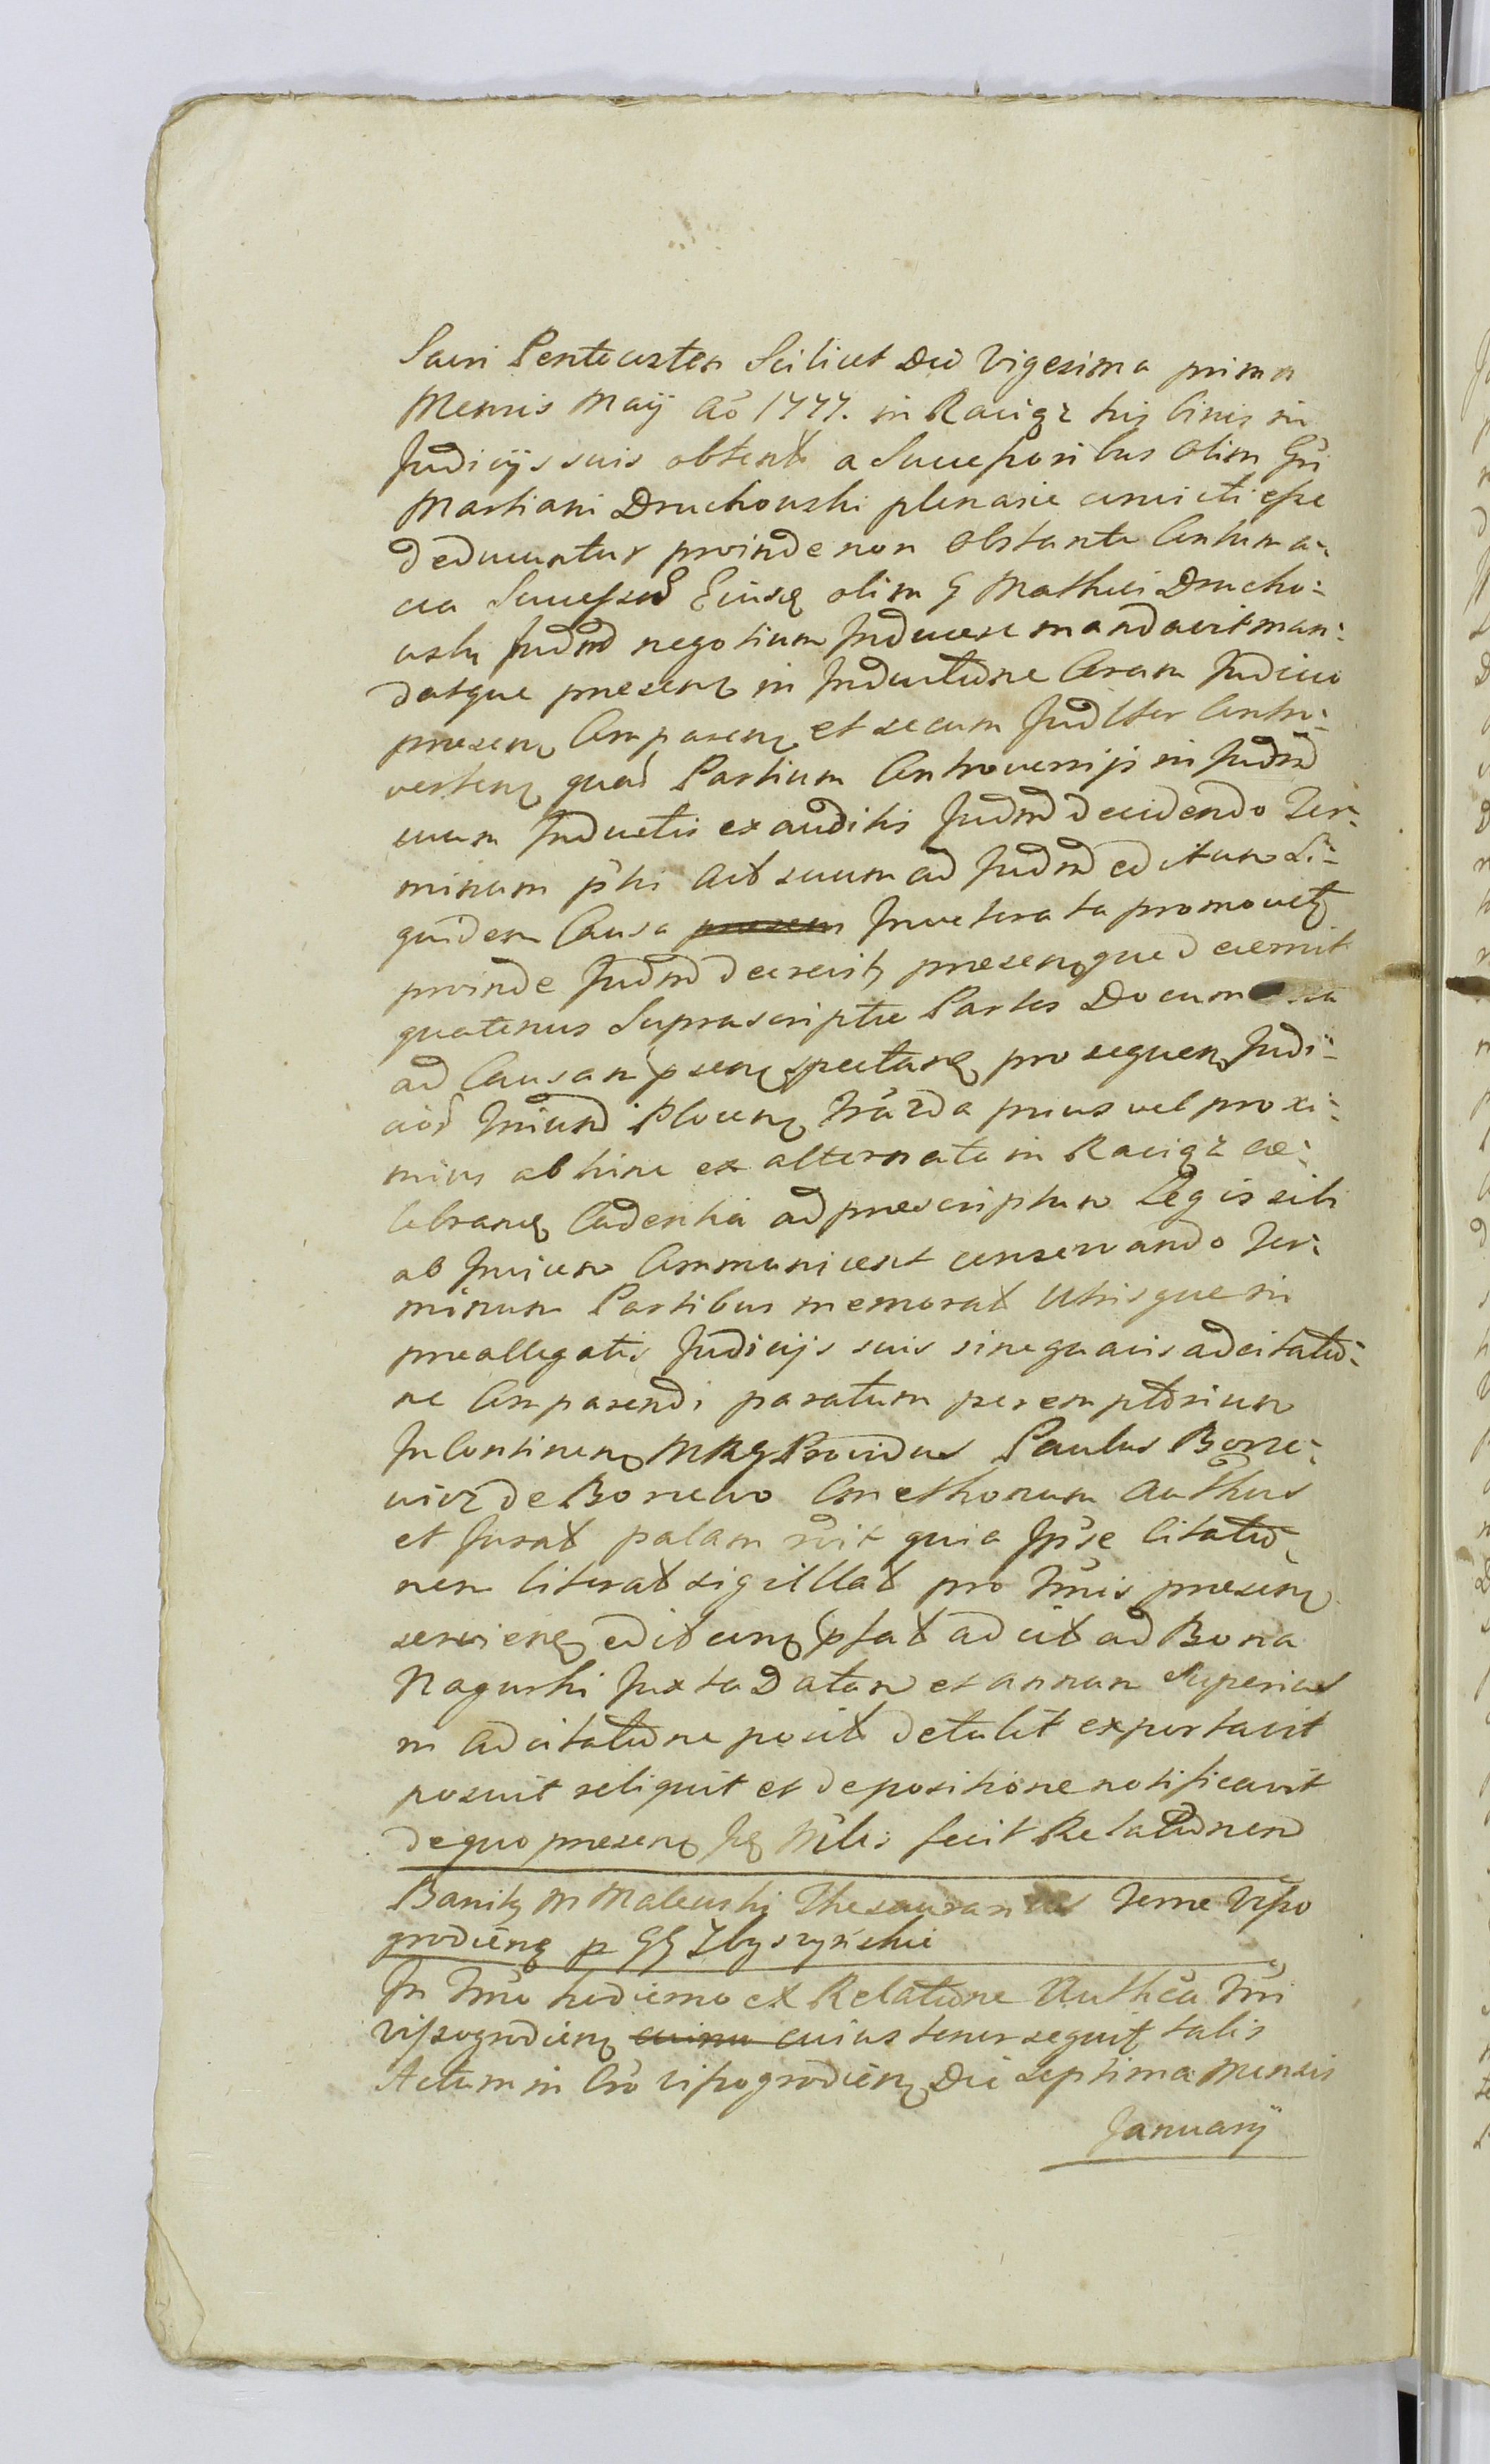 Sacri Pentecosten Scilicet Die Vigesima prima
Mensis Maij Aō 1777. in Raciąz his binis in
Judicijs suis obtent a Successoribus olim Gń
Martiani Druchowski plenarie convicti esse
deducuntur proinde non obstante Contuma-
cia Success Eiusq olim G Mathei Drucho-
wski Judm negotium Inducere mandavit man-
datque presenq in Inductione Coram Judicio
presenq Comparenq et secum Judlter Contro-
vertenq quad Partium Controversijs in Judm
cuum Inductis exauditis Judm decidendo Ter-
minum phi act suum ad Judm editum Si-
quidem Causa presen Inveterata promovetq
proinde Judm decrevit, presenqque decernit
quatenus Suprascriptae Partes Documenta
ad Causam psenq spectanq pro sequenq Judi-
cior Trium Plocenq Trārda prius vel proxi-
mius ab hinc ex alternata in Raciąz ce-
lebranq Cadentia ad prescriptum Legis sibi
ab Invicem Communicent conservando Ter-
minum Partibus memorat Utrisque in
preallegatis Judicijs suis sine quavis adcitatio-
ne Comparendi paratum peremptorium
In Continenq MRG Providus Paulus Borze-
wicz de Borzewo Cmethonum Authus
et Jurat palam rvit quia Ipse Citatio-
nem literat sigillat pro Trmis presenq
servienq edit cumq pfat adcit ad Bona
Nagurki Juxta Datam et annum Superius
in Adcitatione posit detulit exportavit
posuit reliquit et depositione notificavit
de quo presenq Jq Mlis fecit Relationem
Banitq M Malewski Thesaurarius Terrae Viszo
grodienq p GG Zbyszyńskie
In Trmo hodierno ex Relatione Authca Trri
viszogrodienq cuius tenor sequit talis
Actum in Cro viszogrodienq Die septima Mensis
Januarij